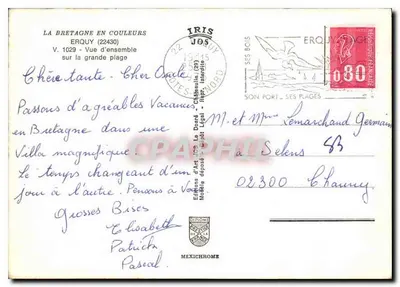 LA BRETAGNE EN COULEURS
ERQUY (22430)
V. 1029 - Vue d'ensemble
sur la grande plage
IRIS
JOS
22 ERQUY
CÔTES DU NORD
SES BOIS
ERQUY
SON PORT - SES PLAGES
0,80
Chère tante - Cher Oncle
Passons d'agréables Vacances
en Bretagne dans une
Villa magnifique
Le temps changeant d'un
jour à l'autre. Pensons à Vous
Grosses Bises
Elisabeth
Patrick
Pascal
Editions d'Art
Modèle déposé
interdite
M. et Mme Lemarchand Germain
à Selens
02300 Chauny
MEXICHROME